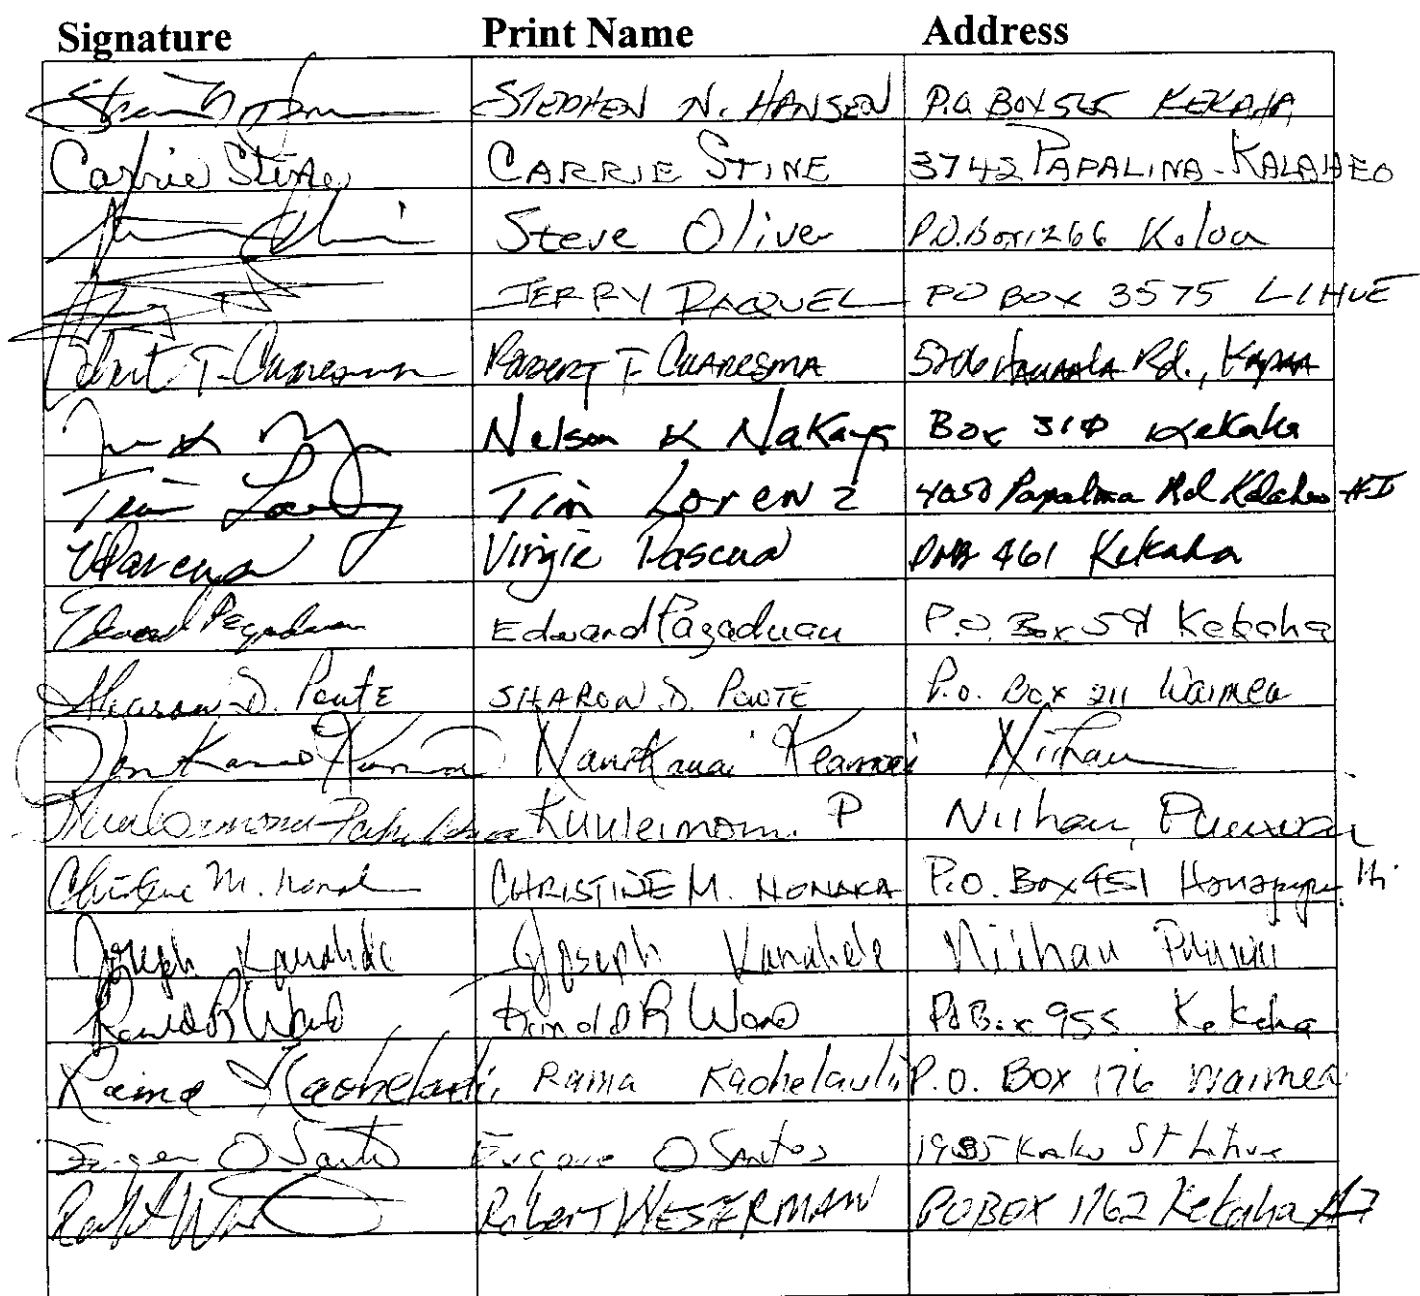 Signature Print Name Address
STEPHEN N. HANSEN P.O. BOX 565 KEKAHA
Carrie Stine CARRIE STINE 3742 PAPALINA - KALAHEO
Steve Oliver P.O. Box 1266 Koloa
JERRY RAQUEL PO BOX 3575 LIHUE
Robert T. Cuaresma ROBERT T. CUARESMA Rd., KAPAA
Nelson K Box 310 Kekaha
Tim Lorenz Tim Lorenz 4050 Papalina Rd Kalaheo HI
VPascua Virgie Pascua 461 Kekaha
Edward Pagaduan Edward Pagaduan P.O. Box Kekaha
Sharon D. SHARON D. P.O. Box 211 Waimea
Niihau
Kuuleimomi P Niihau,
Christine M. CHRISTINE M. NONAKA P.O. Box 451 Hanapepe Hi.
Joseph Kanahele Joseph Kanahele Niihau
PO Box 955 Kekaha
Raina Kaohelaulii Raina Kaohelaulii P.O. Box 176 Waimea
Eugene O Santos Eugene O Santos St Lihue
Robert WESTERMAN PO BOX 1762 Kekaha HI